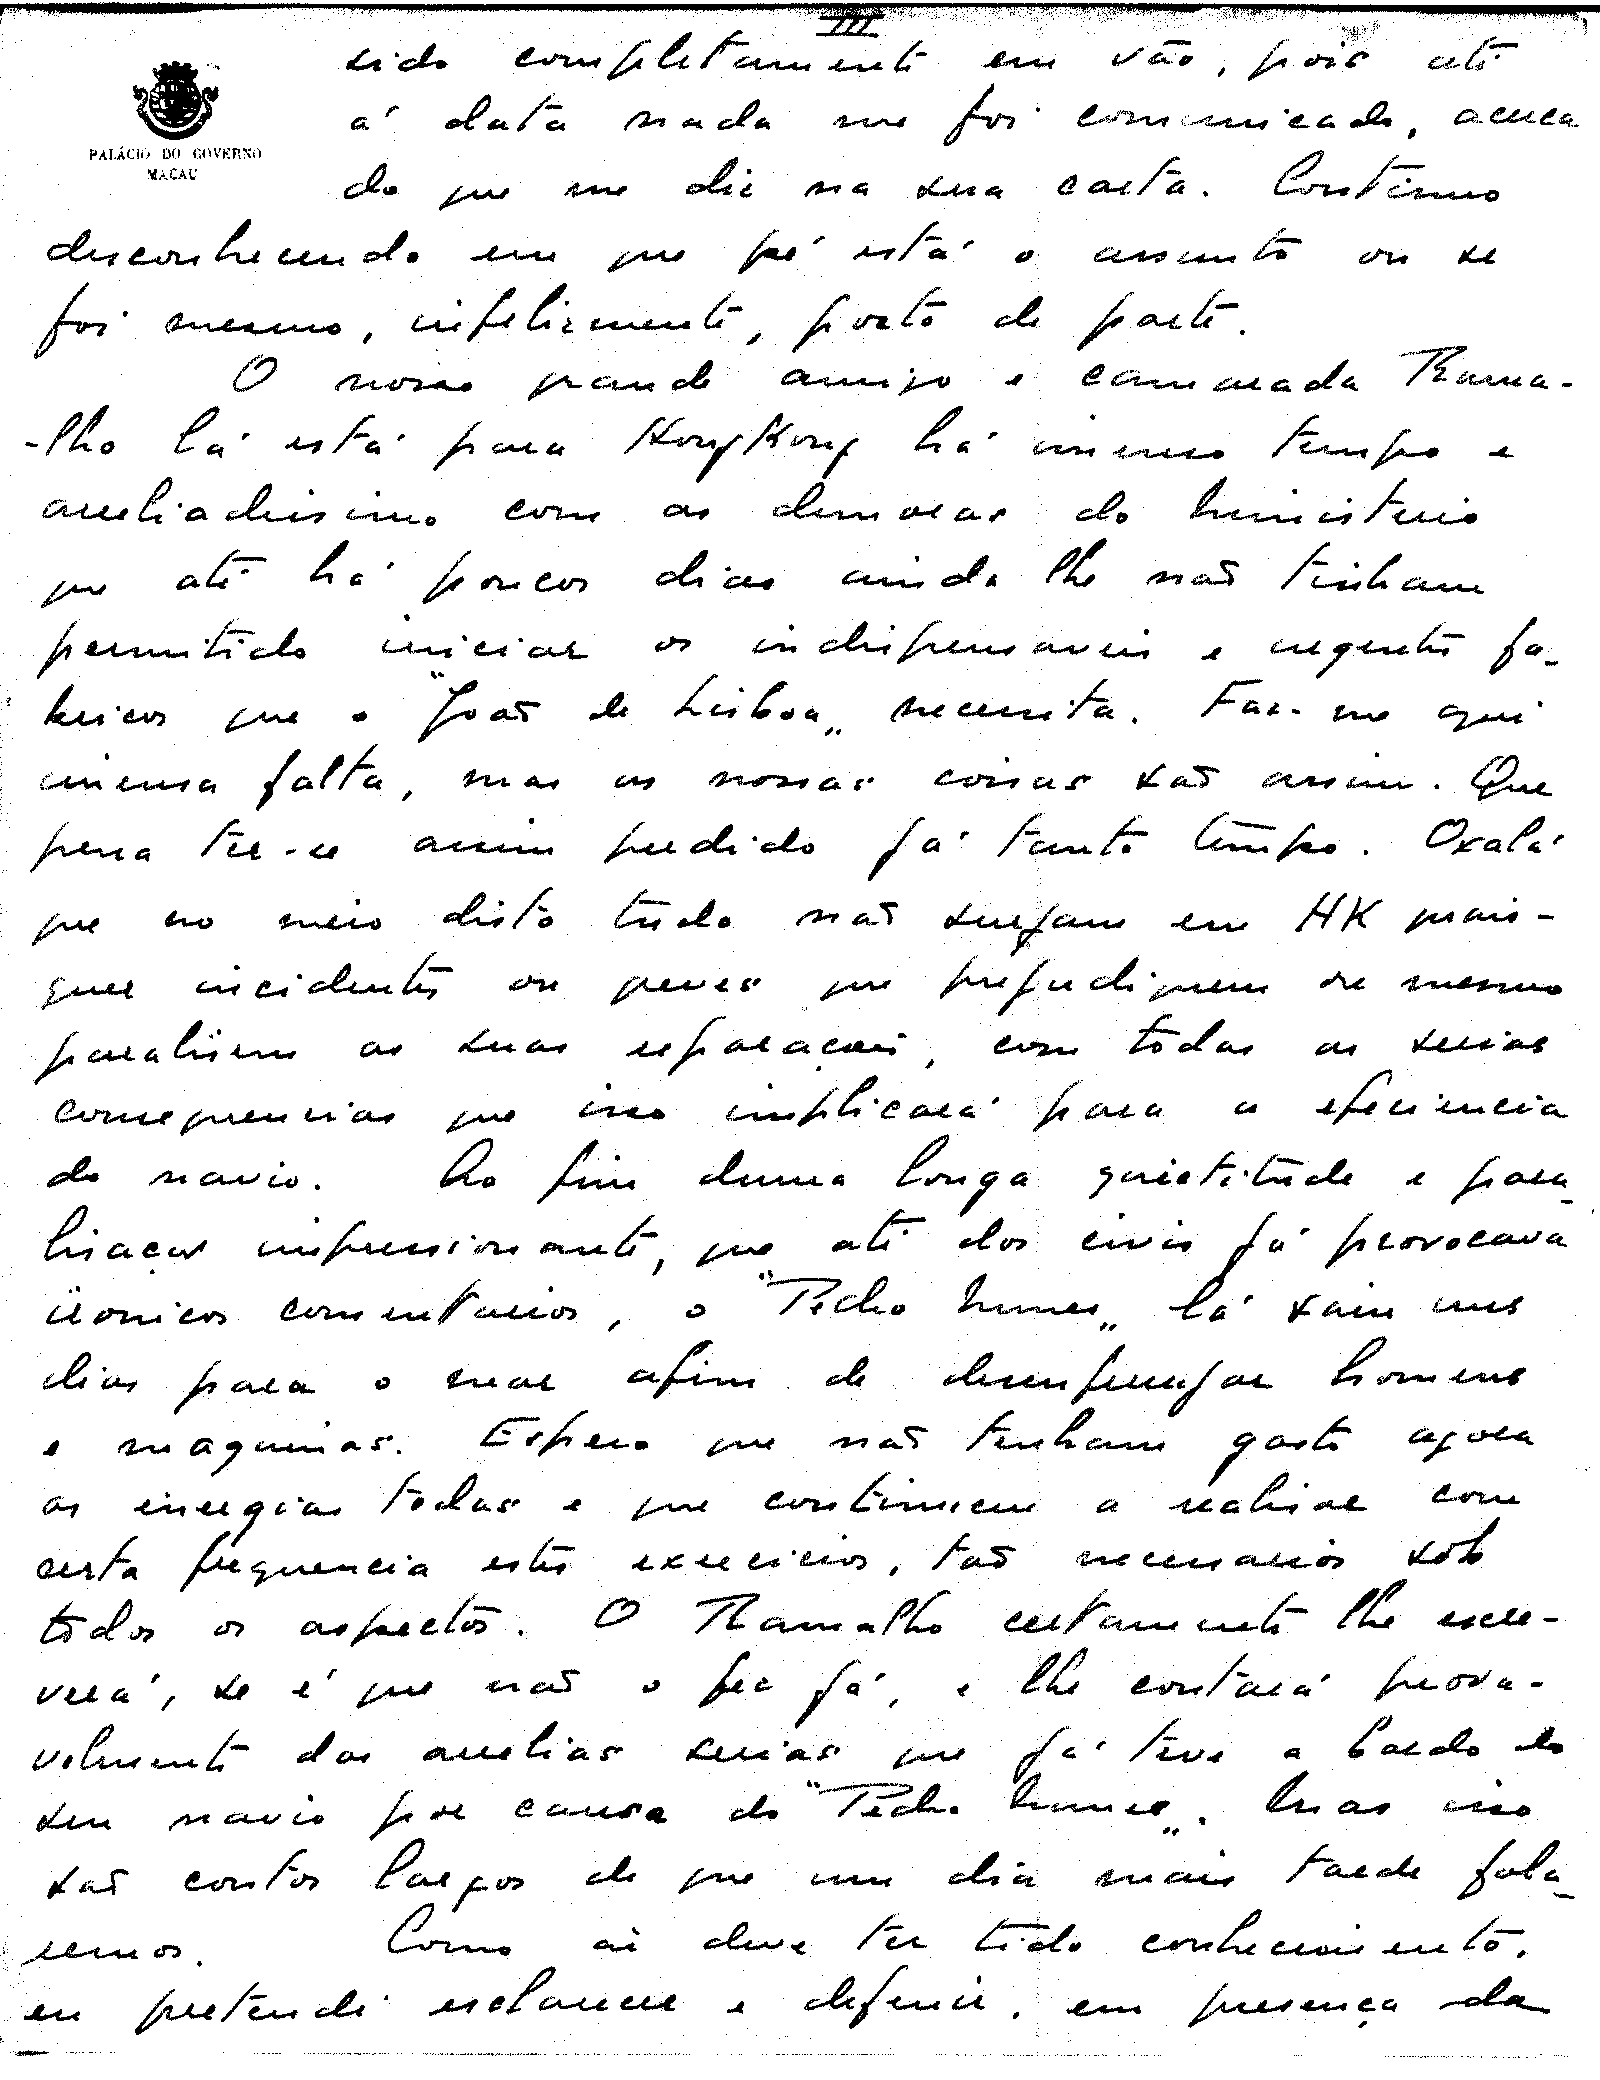 III
sido completamente em vão, pois até
PALÁCIO DO GOVERNO
MACAU
á data nada me foi comunicado, acerca
do que me diz na sua carta. Continuo
desconhecendo em que pé está o assunto ou se
foi mesmo, infelizmente, posto de parte.
O nosso grande amigo e camarada Rama-
-lho lá está para HongKong há imenso tempo e
arreliadissimo com as demoras do Ministerio
que até há poucos dias ainda lhe não tinham
permitido iniciar os indispensaveis e urgentes fa-
bricos que o "João de Lisboa" necessita. Faz-me aqui
imensa falta, mas as nossas coisas são assim. Que
pena ter-se assim perdido já tanto tempo. Oxalá
que no meio disto tudo não surjam em HK quais-
quer incidentes ou greves que prejudiquem ou mesmo
paralisem as suas reparações, com todas as serias
consequencias que isso implicará para a eficiencia
do navio. Ao fim duma longa quietitude e para-
lisação impressionante, que até dos civis já provocava
ironicos comentarios, o "Pedro Nunes" lá saiu uns
dias para o mar afim de desenferrujar homens
e maquinas. Espero que não tenham gasto agora
as energias todas e que continuem a realisar com
certa frequencia estes exercicios, tão necessarios sob
todos os aspectos. O Ramalho certamente lhe escre-
verá, se é que não o fez já, e lhe contará prova-
velmente das arrelias serias que já teve a bordo do
seu navio por causa do "Pedro Nunes". Mas isso
são contos largos de que um dia mais tarde fala-
remos. Como ai deve ter tido conhecimento,
eu pretendi esclarecer e definir, em presença da